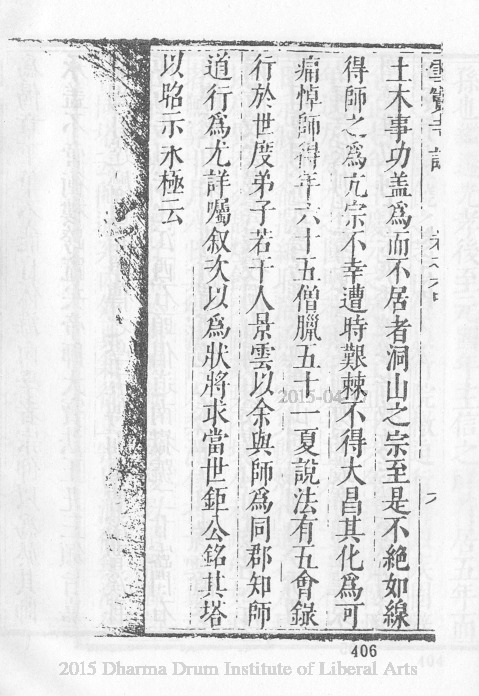 土木事功盖爲而不居者洞山之宗至是不絕如線
得師之爲亢宗不幸遭時艱棘不得大昌其化爲可
痛悼師得年六十五僧臘五十一夏說法有五會錄
行於世度弟子若干人景雲以余與師爲同郡知師
道行爲尤詳囑叙次以爲狀將求當世鉅公銘其塔
以昭示永極云
2015-04
406
2015 Dharma Drum Institute of Liberal Arts